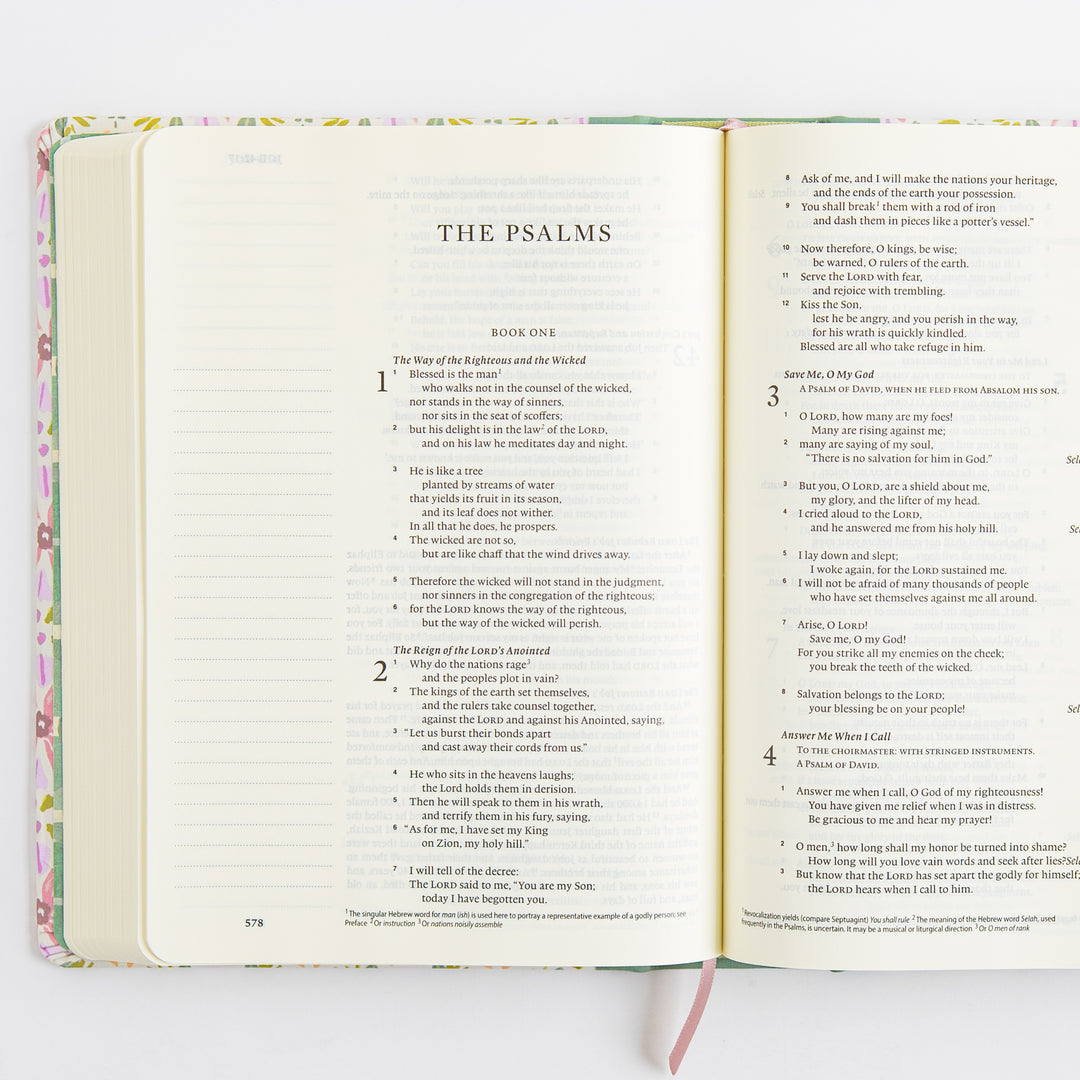 THE PSALMS
BOOK ONE
The Way of the Righteous and the Wicked
1
1 Blessed is the man1
who walks not in the counsel of the wicked,
nor stands in the way of sinners,
nor sits in the seat of scoffers;
2 but his delight is in the law2 of the LORD,
and on his law he meditates day and night.
3 He is like a tree
planted by streams of water
that yields its fruit in its season,
and its leaf does not wither.
In all that he does, he prospers.
4 The wicked are not so,
but are like chaff that the wind drives away.
5 Therefore the wicked will not stand in the judgment,
nor sinners in the congregation of the righteous;
6 for the LORD knows the way of the righteous,
but the way of the wicked will perish.
The Reign of the LORD's Anointed
2
1 Why do the nations rage3
and the peoples plot in vain?
2 The kings of the earth set themselves,
and the rulers take counsel together,
against the LORD and against his Anointed, saying,
3 “Let us burst their bonds apart
and cast away their cords from us.”
4 He who sits in the heavens laughs;
the Lord holds them in derision.
5 Then he will speak to them in his wrath,
and terrify them in his fury, saying,
6 “As for me, I have set my King
on Zion, my holy hill.”
7 I will tell of the decree:
The LORD said to me, “You are my Son;
today I have begotten you.
1 The singular Hebrew word for man (ish) is used here to portray a representative example of a godly person; see
Preface 2 Or instruction 3 Or nations noisily assemble
578
8 Ask of me, and I will make the nations your heritage,
and the ends of the earth your possession.
9 You shall break1 them with a rod of iron
and dash them in pieces like a potter's vessel.”
10 Now therefore, O kings, be wise;
be warned, O rulers of the earth.
11 Serve the LORD with fear,
and rejoice with trembling.
12 Kiss the Son,
lest he be angry, and you perish in the way,
for his wrath is quickly kindled.
Blessed are all who take refuge in him.
Save Me, O My God
3
A PSALM OF DAVID, WHEN HE FLED FROM ABSALOM HIS SON.
1 O LORD, how many are my foes!
Many are rising against me;
2 many are saying of my soul,
“There is no salvation for him in God.” Sel
3 But you, O LORD, are a shield about me,
my glory, and the lifter of my head.
4 I cried aloud to the LORD,
and he answered me from his holy hill. Se
5 I lay down and slept;
I woke again, for the LORD sustained me.
6 I will not be afraid of many thousands of people
who have set themselves against me all around.
7 Arise, O LORD!
Save me, O my God!
For you strike all my enemies on the cheek;
you break the teeth of the wicked.
8 Salvation belongs to the LORD;
your blessing be on your people! Sel
Answer Me When I Call
4
TO THE CHOIRMASTER: WITH STRINGED INSTRUMENTS.
A PSALM OF DAVID.
1 Answer me when I call, O God of my righteousness!
You have given me relief when I was in distress.
Be gracious to me and hear my prayer!
2 O men,3 how long shall my honor be turned into shame?
How long will you love vain words and seek after lies? Sel
3 But know that the LORD has set apart the godly for himself;
the LORD hears when I call to him.
1 Revocalization yields (compare Septuagint) You shall rule 2 The meaning of the Hebrew word Selah, used
frequently in the Psalms, is uncertain. It may be a musical or liturgical direction 3 Or O men of rank